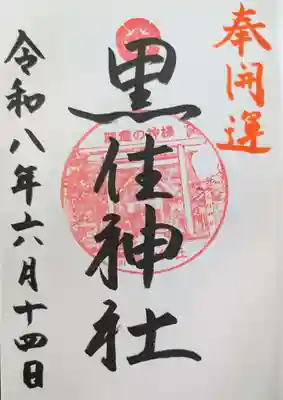 奉開運
黒住神社
開運の神様
令和八年六月十四日